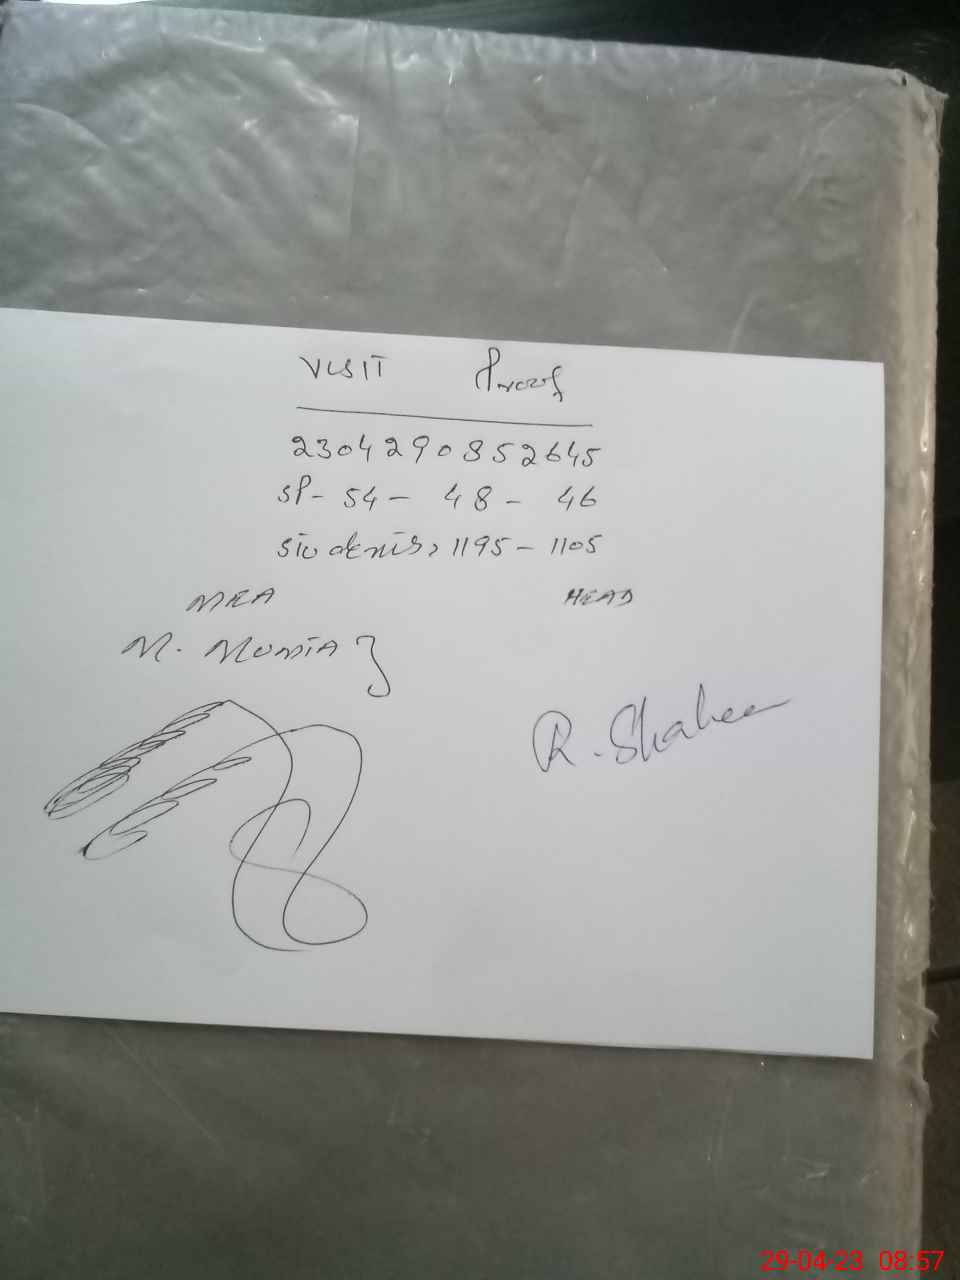 VISIT Proof
2304290852645
SP- 54 - 48 - 46
Students, 1195 - 1105
MEA HEAD
M. Mumtaz
R. Shaheen
29-04-23 08:57